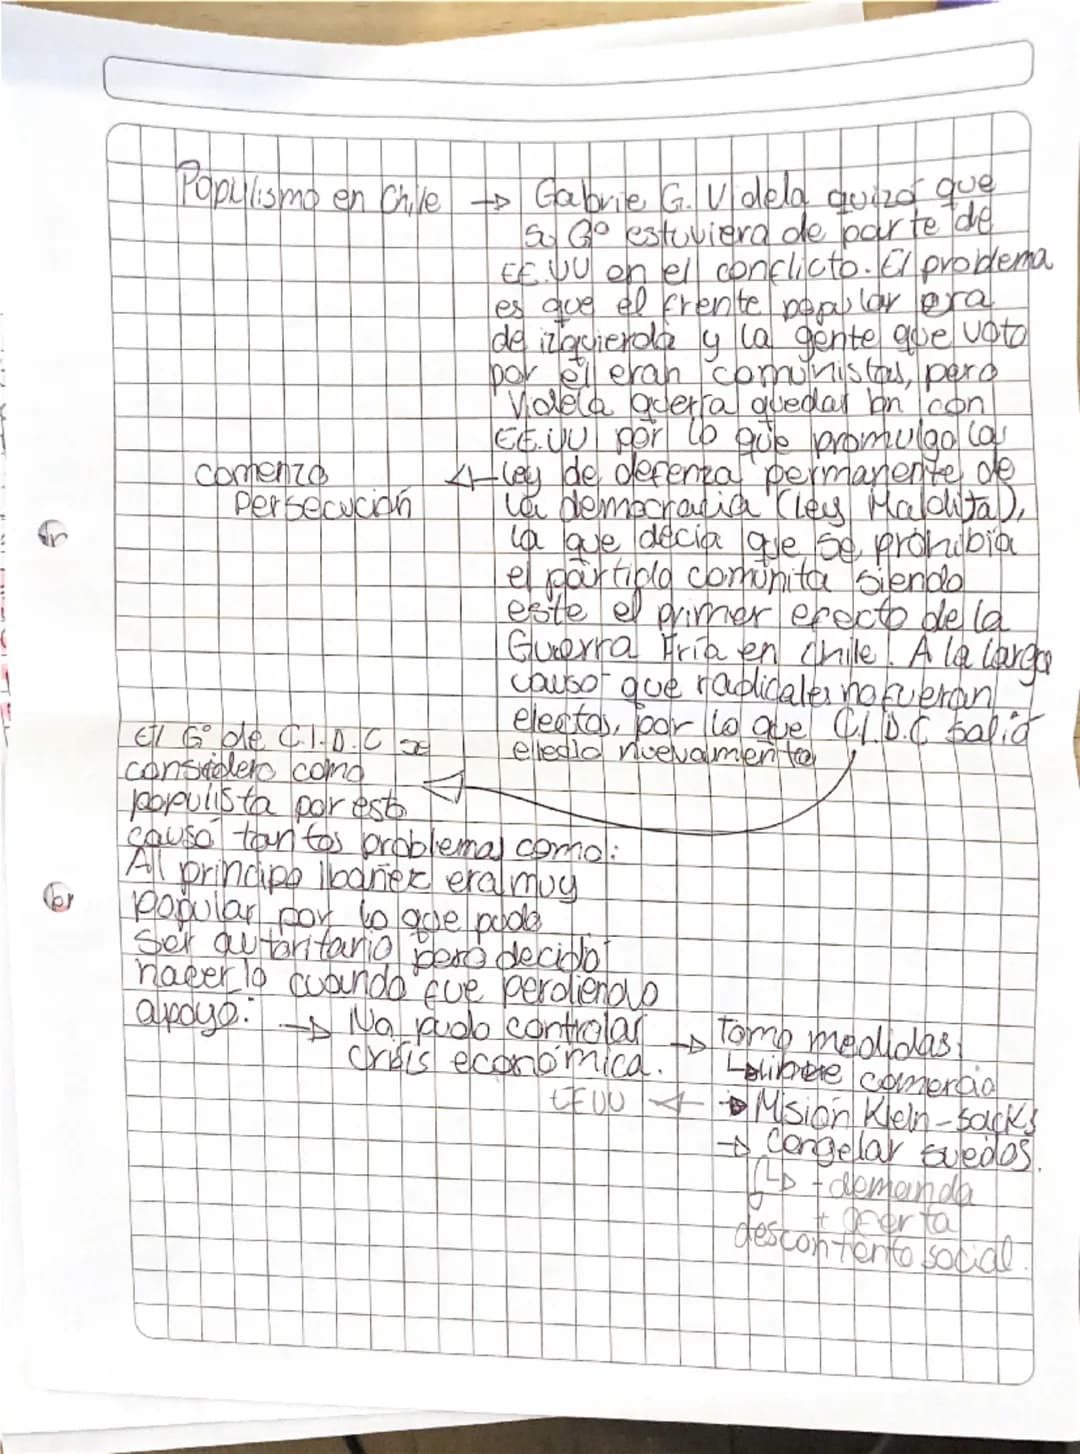 Populismo en Chile → Gabrie G. Videla quizó que
su Gº estuviera de parte de
EE.UU en el conflicto. El problema
es que el frente popular era
de izquierda y la gente que voto
por él eran comunistas, pero
Videla querra quedar bn con
EE.UU por lo que promulgo la
Ley de defenza permanente de
la democracia (Ley Maldita),
comenzo
persecución
la que decia que se prohibia
el partido comunita siendo
este el primer efecto de la
Guerra Fria en chile. A la larga
causo que radicales no fueran
electos, por lo que C.I.D.C salió
eliedio nuevamente
El Gº de C.I.D.C se
considero como
populista por esto
causó tantos problemas como:
Al principo Ibañez era muy
popular por lo que pudo
ser autoritario pero decidió
hacerlo cuando fue perdiendo
apoyo: → No pudo controlar
crisis económica.
→ Tomo medidas:
→ libre comercio
EEUU ← → Misión Klein-sacks
→ Congelar sueldos.
→ - demanda
+ oferta
descontento social.